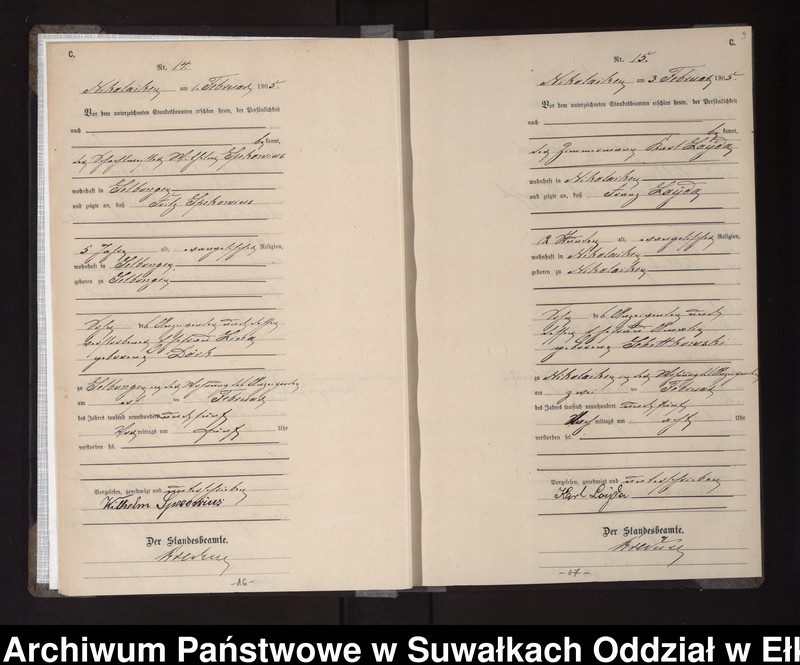 C.
Nr. 14.
Nikolaiken am 1. Februar 1905.
Vor dem unterzeichneten Standesbeamten erschien heute, der Persönlichkeit
nach
bekannt,
der Wilhelm Spekowius
wohnhaft in Selbongen
und zeigte an, daß Fritz Spekowius
5 Jahre alt, evangelischer Religion,
wohnhaft in Selbongen
geboren zu Selbongen
Sohn des Anzeigenden und dessen
verstorbenen Ehefrau
geborene
zu Selbongen in der Wohnung des Anzeigenden
am Februar
des Jahres tausend neunhundert und fünf
Vormittags um fünf Uhr
verstorben sei.
Vorgelesen, genehmigt und unterschrieben
Wilhelm Spekowius
Der Standesbeamte.
-16-
C.
Nr. 15.
Nikolaiken am 3 Februar 1905
Vor dem unterzeichneten Standesbeamten erschien heute, der Persönlichkeit
nach
bekannt,
der Zimmermann Karl Loyda
wohnhaft in Nikolaiken
und zeigte an, daß Franz Loyda
12 Stunden alt, evangelischer Religion,
wohnhaft in Nikolaiken
geboren zu Nikolaiken
Sohn des Anzeigenden und
dessen Ehefrau
geborene
zu Nikolaiken in der Wohnung des Anzeigenden
am zwei Februar
des Jahres tausend neunhundert und fünf
Nachmittags um acht Uhr
verstorben sei.
Vorgelesen, genehmigt und unterschrieben
Karl Loyda
Der Standesbeamte.
-17-
Archiwum Państwowe w Suwałkach Oddział w Eł